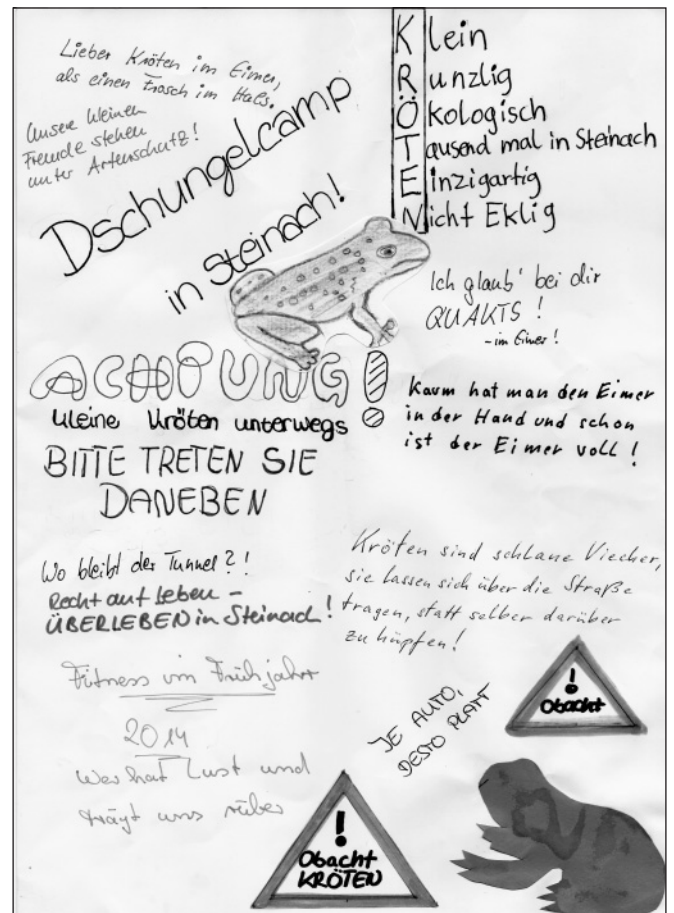 Lieber Kröten im Eimer,
als einen Frosch im Hals.
Unsere kleinen
Freunde stehen
unter Artenschutz!
Dschungelcamp
in Steinach!
Klein
Runzlig
Ökologisch
Tausend mal in Steinach
Einzigartig
Nicht Eklig
Ich glaub' bei dir
QUAKTS!
-im Eimer!
ACHTUNG!
kleine Kröten unterwegs
BITTE TRETEN SIE
DANEBEN
Kaum hat man den Eimer
in der Hand und schon
ist der Eimer voll!
Wo bleibt der Tunnel?!
Recht auf Leben –
ÜBERLEBEN in Steinach!
Kröten sind schlaue Viecher,
sie lassen sich über die Straße
tragen, statt selber darüber
zu hüpfen!
Fitness im Frühjahr
2014
Wer hat Lust und
trägt uns rüber
JE AUTO,
DESTO PLATT
!
Obacht
!
Obacht
KRÖTEN